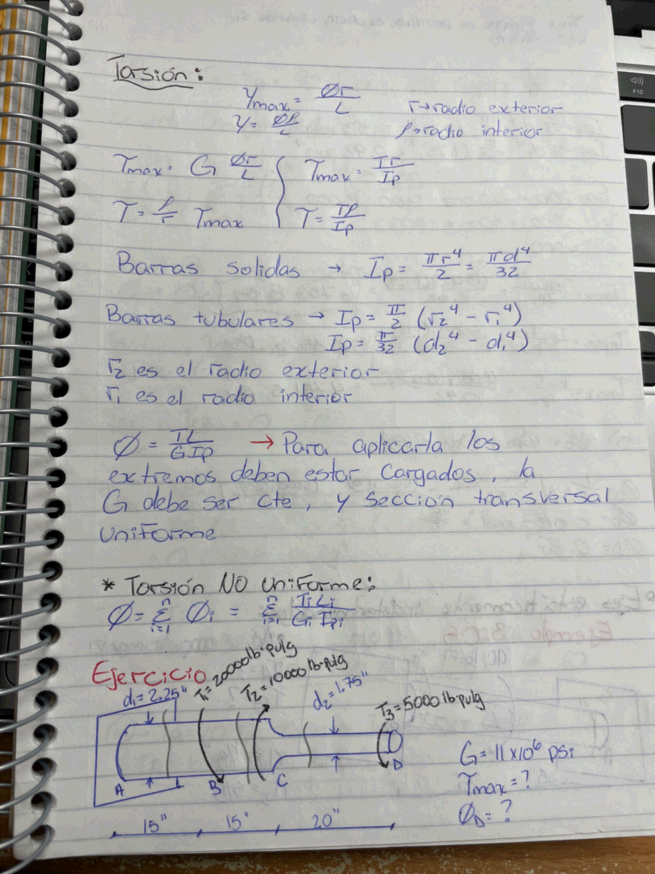 Torsión:
γmax = Ør/L
γ = Øρ/L
r→radio exterior
ρ→radio interior
Tmax = G Ør/L
Tmax = Tr/Ip
T = ρ/r Tmax
T = Tρ/Ip
Barras solidas → Ip = πr⁴/2 = πd⁴/32
Barras tubulares → Ip = π/2 (r₂⁴ - r₁⁴)
Ip = π/32 (d₂⁴ - d₁⁴)
r₂ es el radio exterior
r₁ es el radio interior
Ø = TL/GIp → Para aplicarla los
extremos deben estar cargados, la
G debe ser cte, y sección transversal
uniforme
* Torsión NO uniforme:
Ø = Σⁿᵢ₌₁ Øᵢ = Σⁿᵢ₌₁ TᵢLᵢ/GᵢIpᵢ
Ejercicio
d₁=2.25"
T₁=20000lb·pulg
T₂=10000lb·pulg
d₂=1.75"
T₃=5000lb·pulg
A
B
C
D
G=11x10⁶ psi
Tmax=?
ØD=?
15" 15" 20"
F12